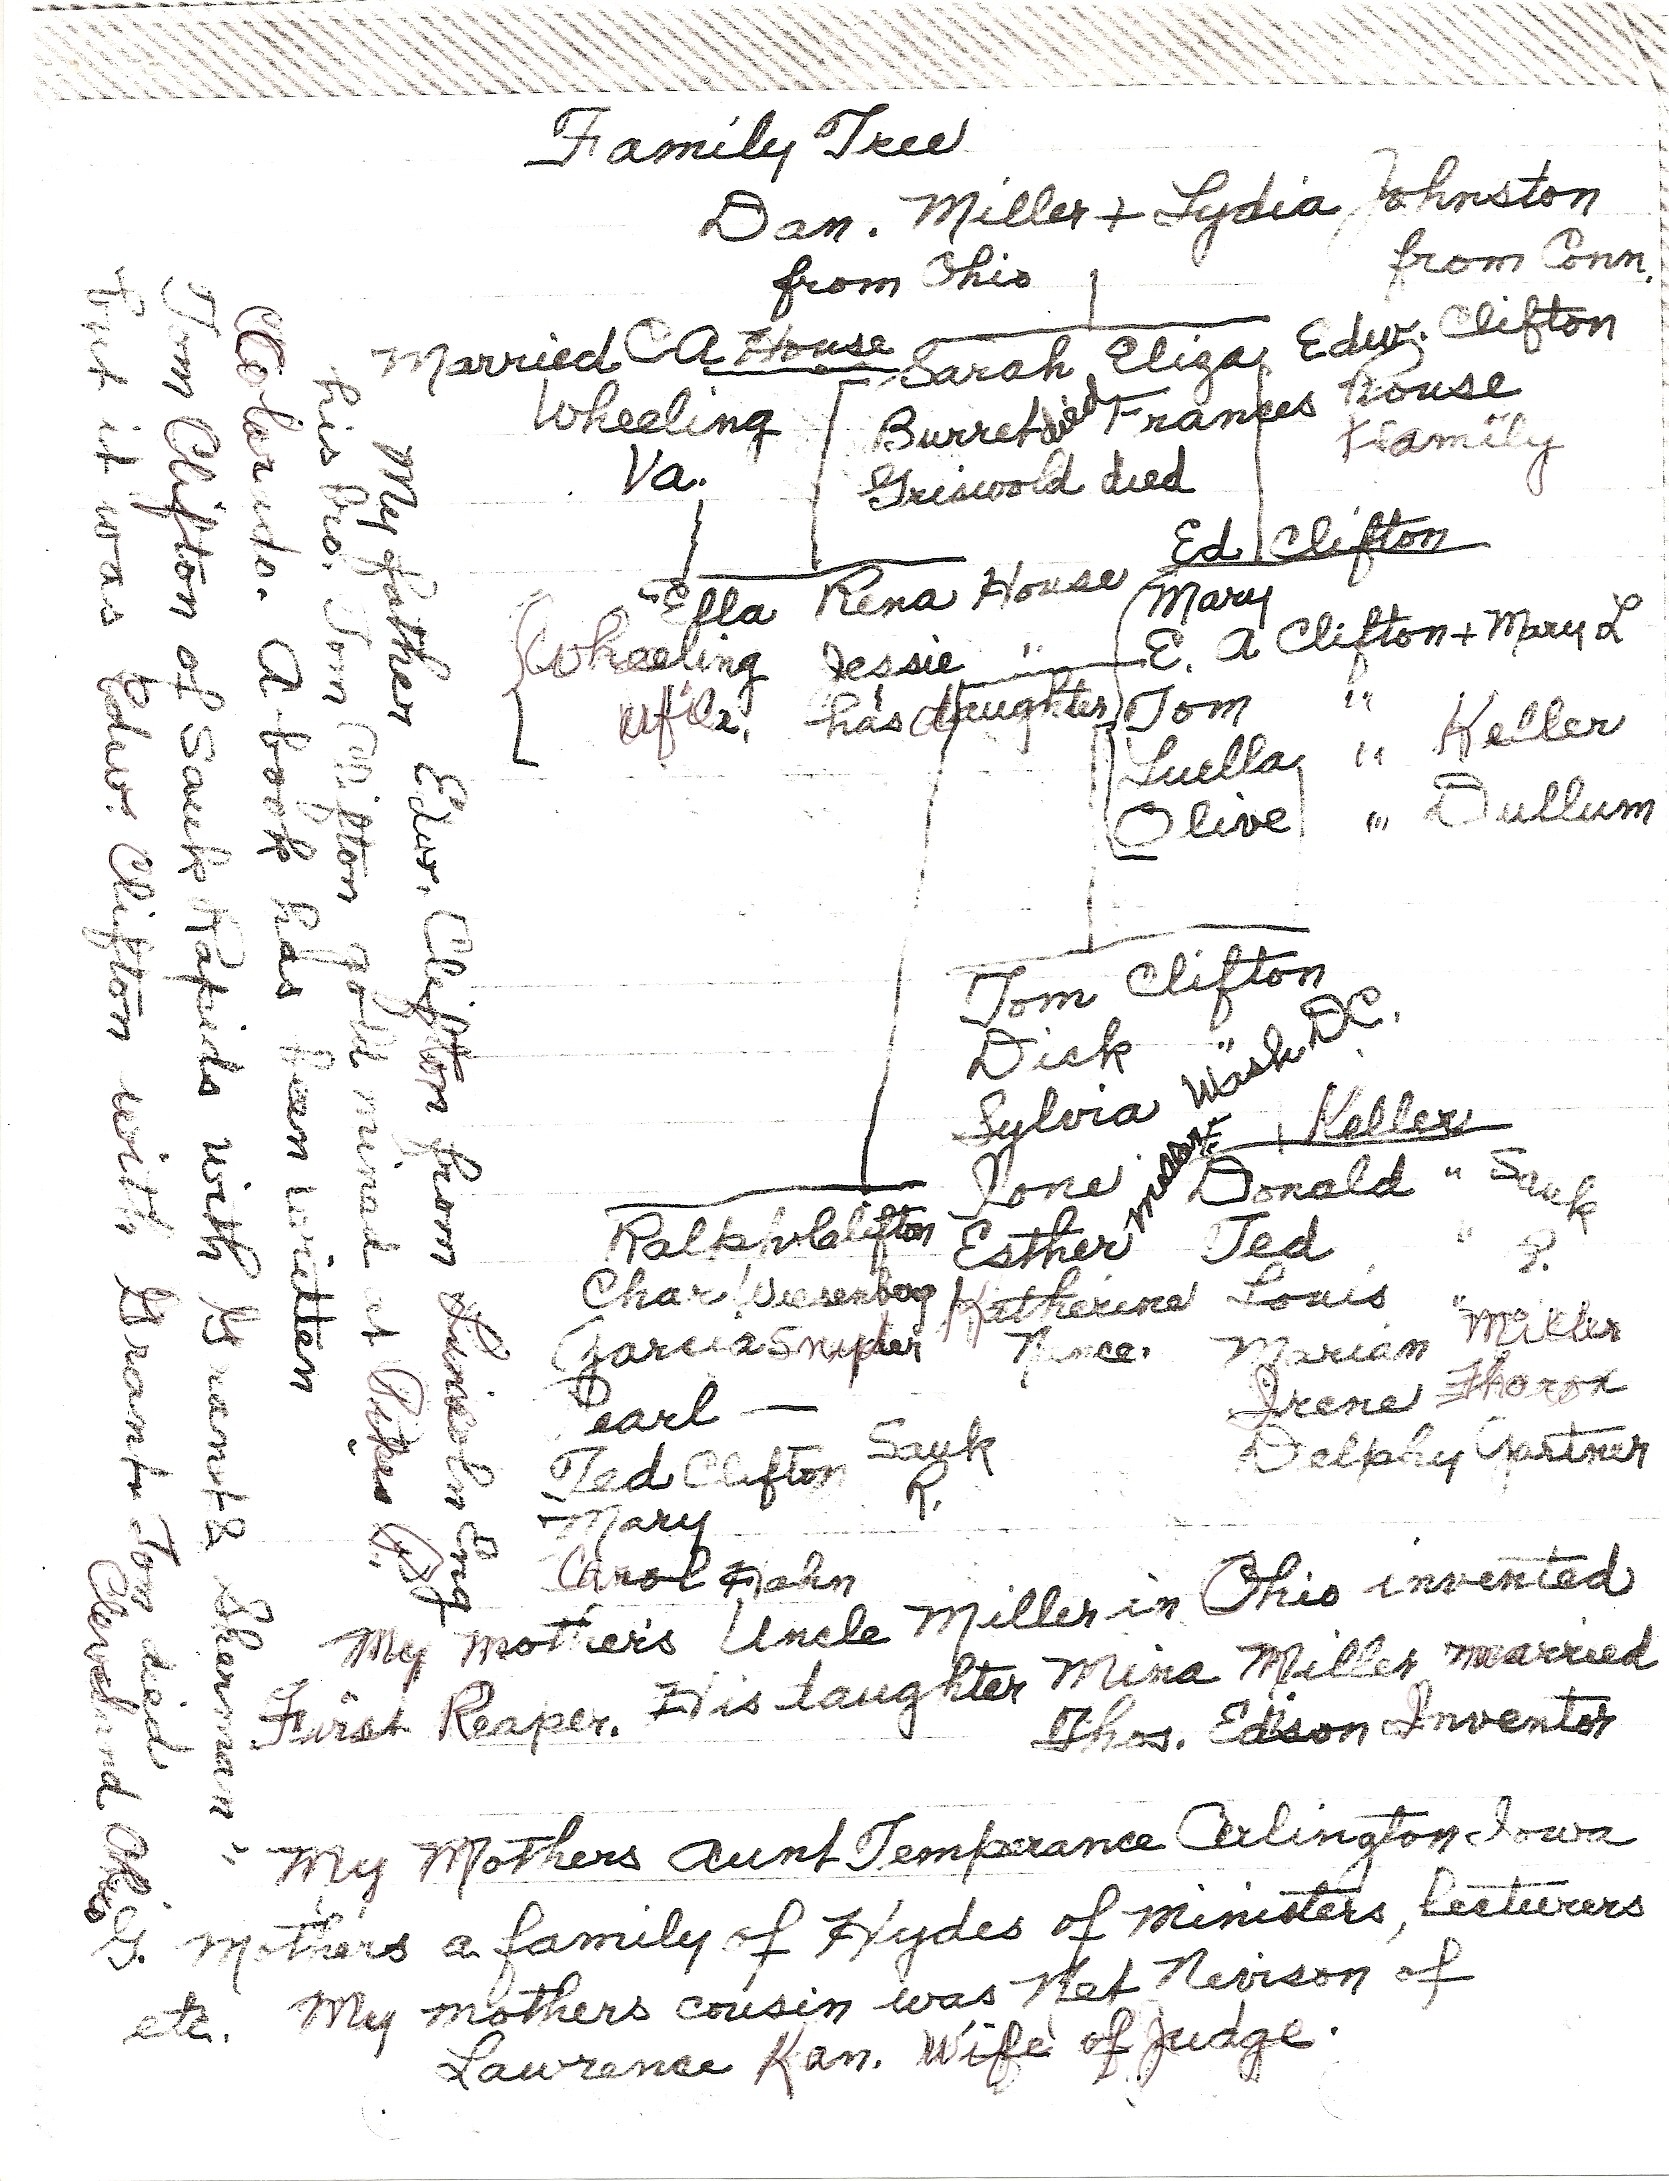 Family Tree
Dan. Miller + Lydia Johnston
from Ohio
from Conn.
Married C A House
Sarah Eliza
Edw. Clifton
Wheeling
Burret died Frances
House
Family
Va.
Griswold died
Ed Clifton
Ella Rena House
Mary
Wheeling Jessie "
E. A Clifton + Mary L
has daughter
Tom "
Luella " Keller
Olive " Dullum
Tom Clifton
Dick "
Sylvia Wash. D.C.
Keller
Ione
Donald " Sauk
Ralph Clifton
Esther
Ted " ?
Char Weesenberg
Katherine
Louis "
Garcia Snyder
Nance.
Marian Miller
Pearl —
Irene
Ted Clifton Sauk R.
Delphy Gartner
Mary
Carol Hahn
My Mother's Uncle Miller in Ohio invented
First Reaper. His daughter Mina Miller married
Thos. Edison Inventor
My Mothers aunt Temperance Arlington Iowa
G. Mothers a family of Hydes of Ministers, Lecturers
etc. My mothers cousin was Net Nevison of
Lawrence Kan. Wife of Judge.
My father Edw. Clifton from Lincoln Eng
his bro. Tom Clifton gold mined at Pikes
Colorado. A book has been written
Tom Clifton of Sauk Rapids with Grant & Sherman"
but it was Edw. Clifton with Grant. Tom died
Cleveland Ohio